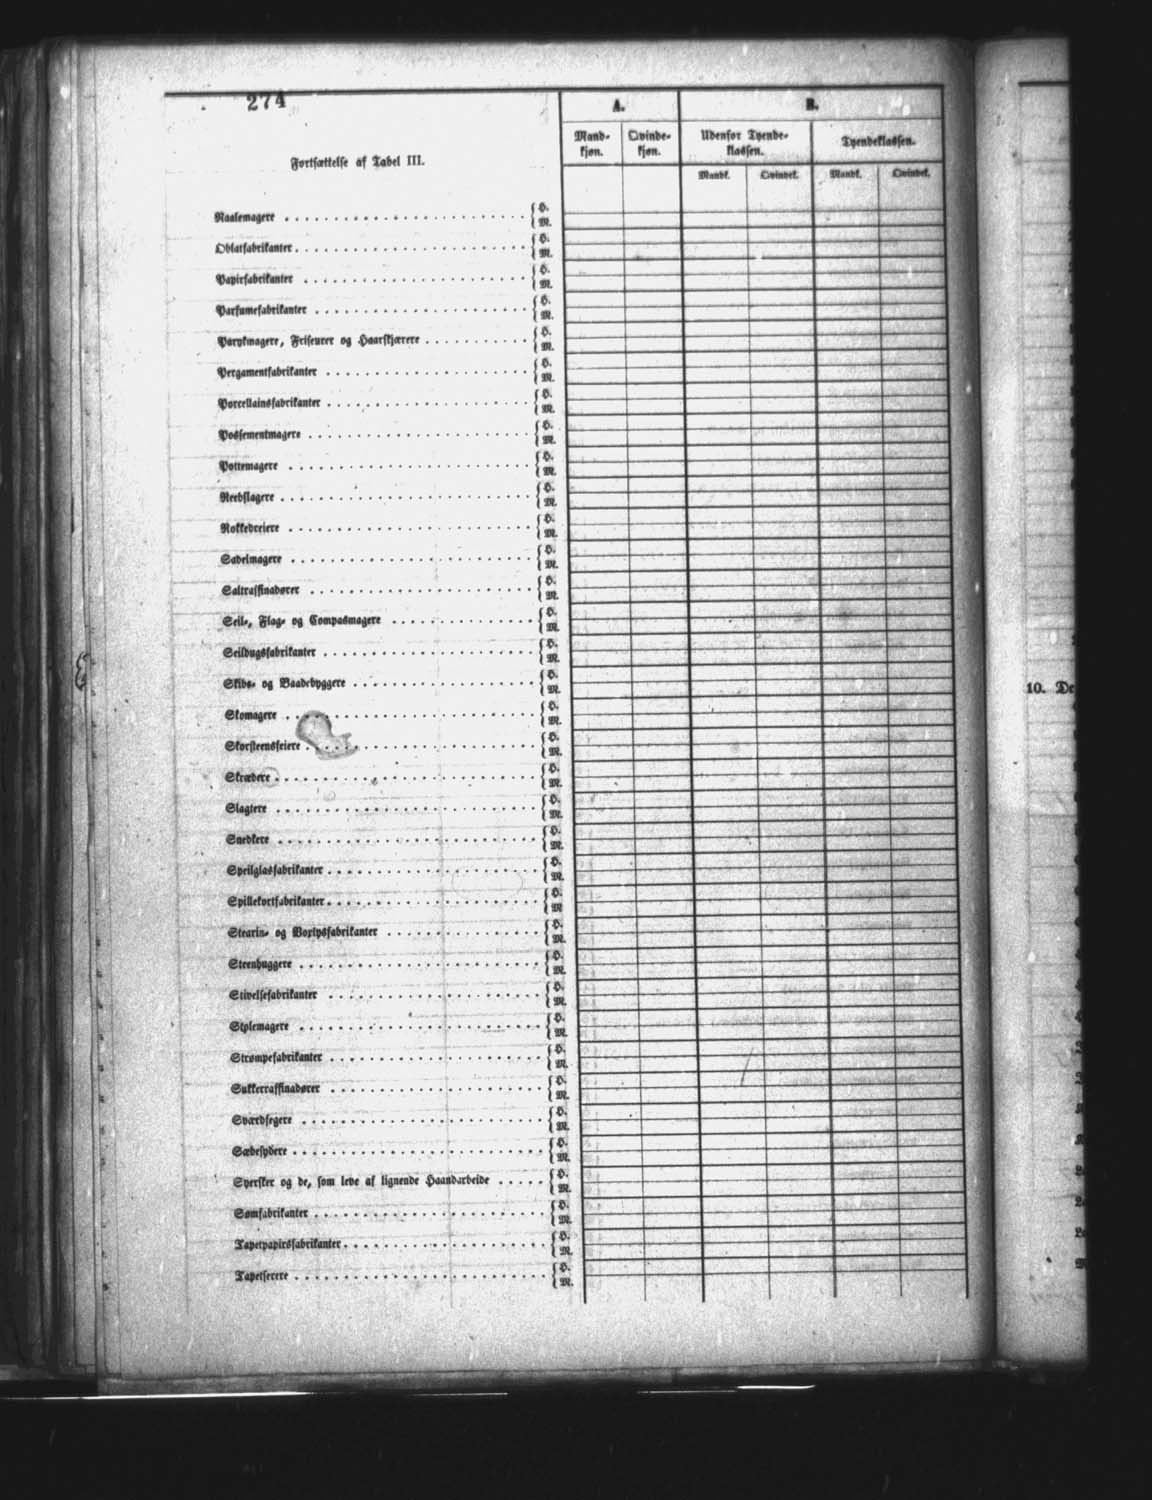 274
A.
B.
Mand-kjøn.
Qvinde-kjøn.
Udenfor Tyende-klassen.
Tyendeklassen.
Mandk.
Qvindek.
Mandk.
Qvindek.
Fortsættelse af Tabel III.
Naalemagere { H. M.
Oblatfabrikanter { H. M.
Papirfabrikanter { H. M.
Parfumefabrikanter { H. M.
Parykmagere, Friseurer og Haarskjærere { H. M.
Pergamentfabrikanter { H. M.
Porcellainsfabrikanter { H. M.
Possementmagere { H. M.
Pottemagere { H. M.
Reebslagere { H. M.
Rokkedreiere { H. M.
Sadelmagere { H. M.
Saltraffinadører { H. M.
Seil-, Flag- og Compasmagere { H. M.
Seildugsfabrikanter { H. M.
Skibs- og Baadebyggere { H. M.
Skomagere { H. M.
Skorsteensfeiere { H. M.
Skrædere { H. M.
Slagtere { H. M.
Snedkere { H. M.
Speilglasfabrikanter { H. M.
Spillekortfabrikanter { H. M
Stearin- og Voxlysfabrikanter { H. M.
Steenhuggere { H. M.
Stivelsefabrikanter { H. M.
Stolemagere { H. M.
Strømpefabrikanter { H. M.
Sukkerraffinadører { H. M.
Sværdfegere { H. M.
Sæbesydere { H. M.
Syersker og de, som leve af lignende Haandarbeide { H. M.
Sømfabrikanter { H. M.
Tapetpapirsfabrikanter { H. M.
Tapetserere { H. M.
10. De